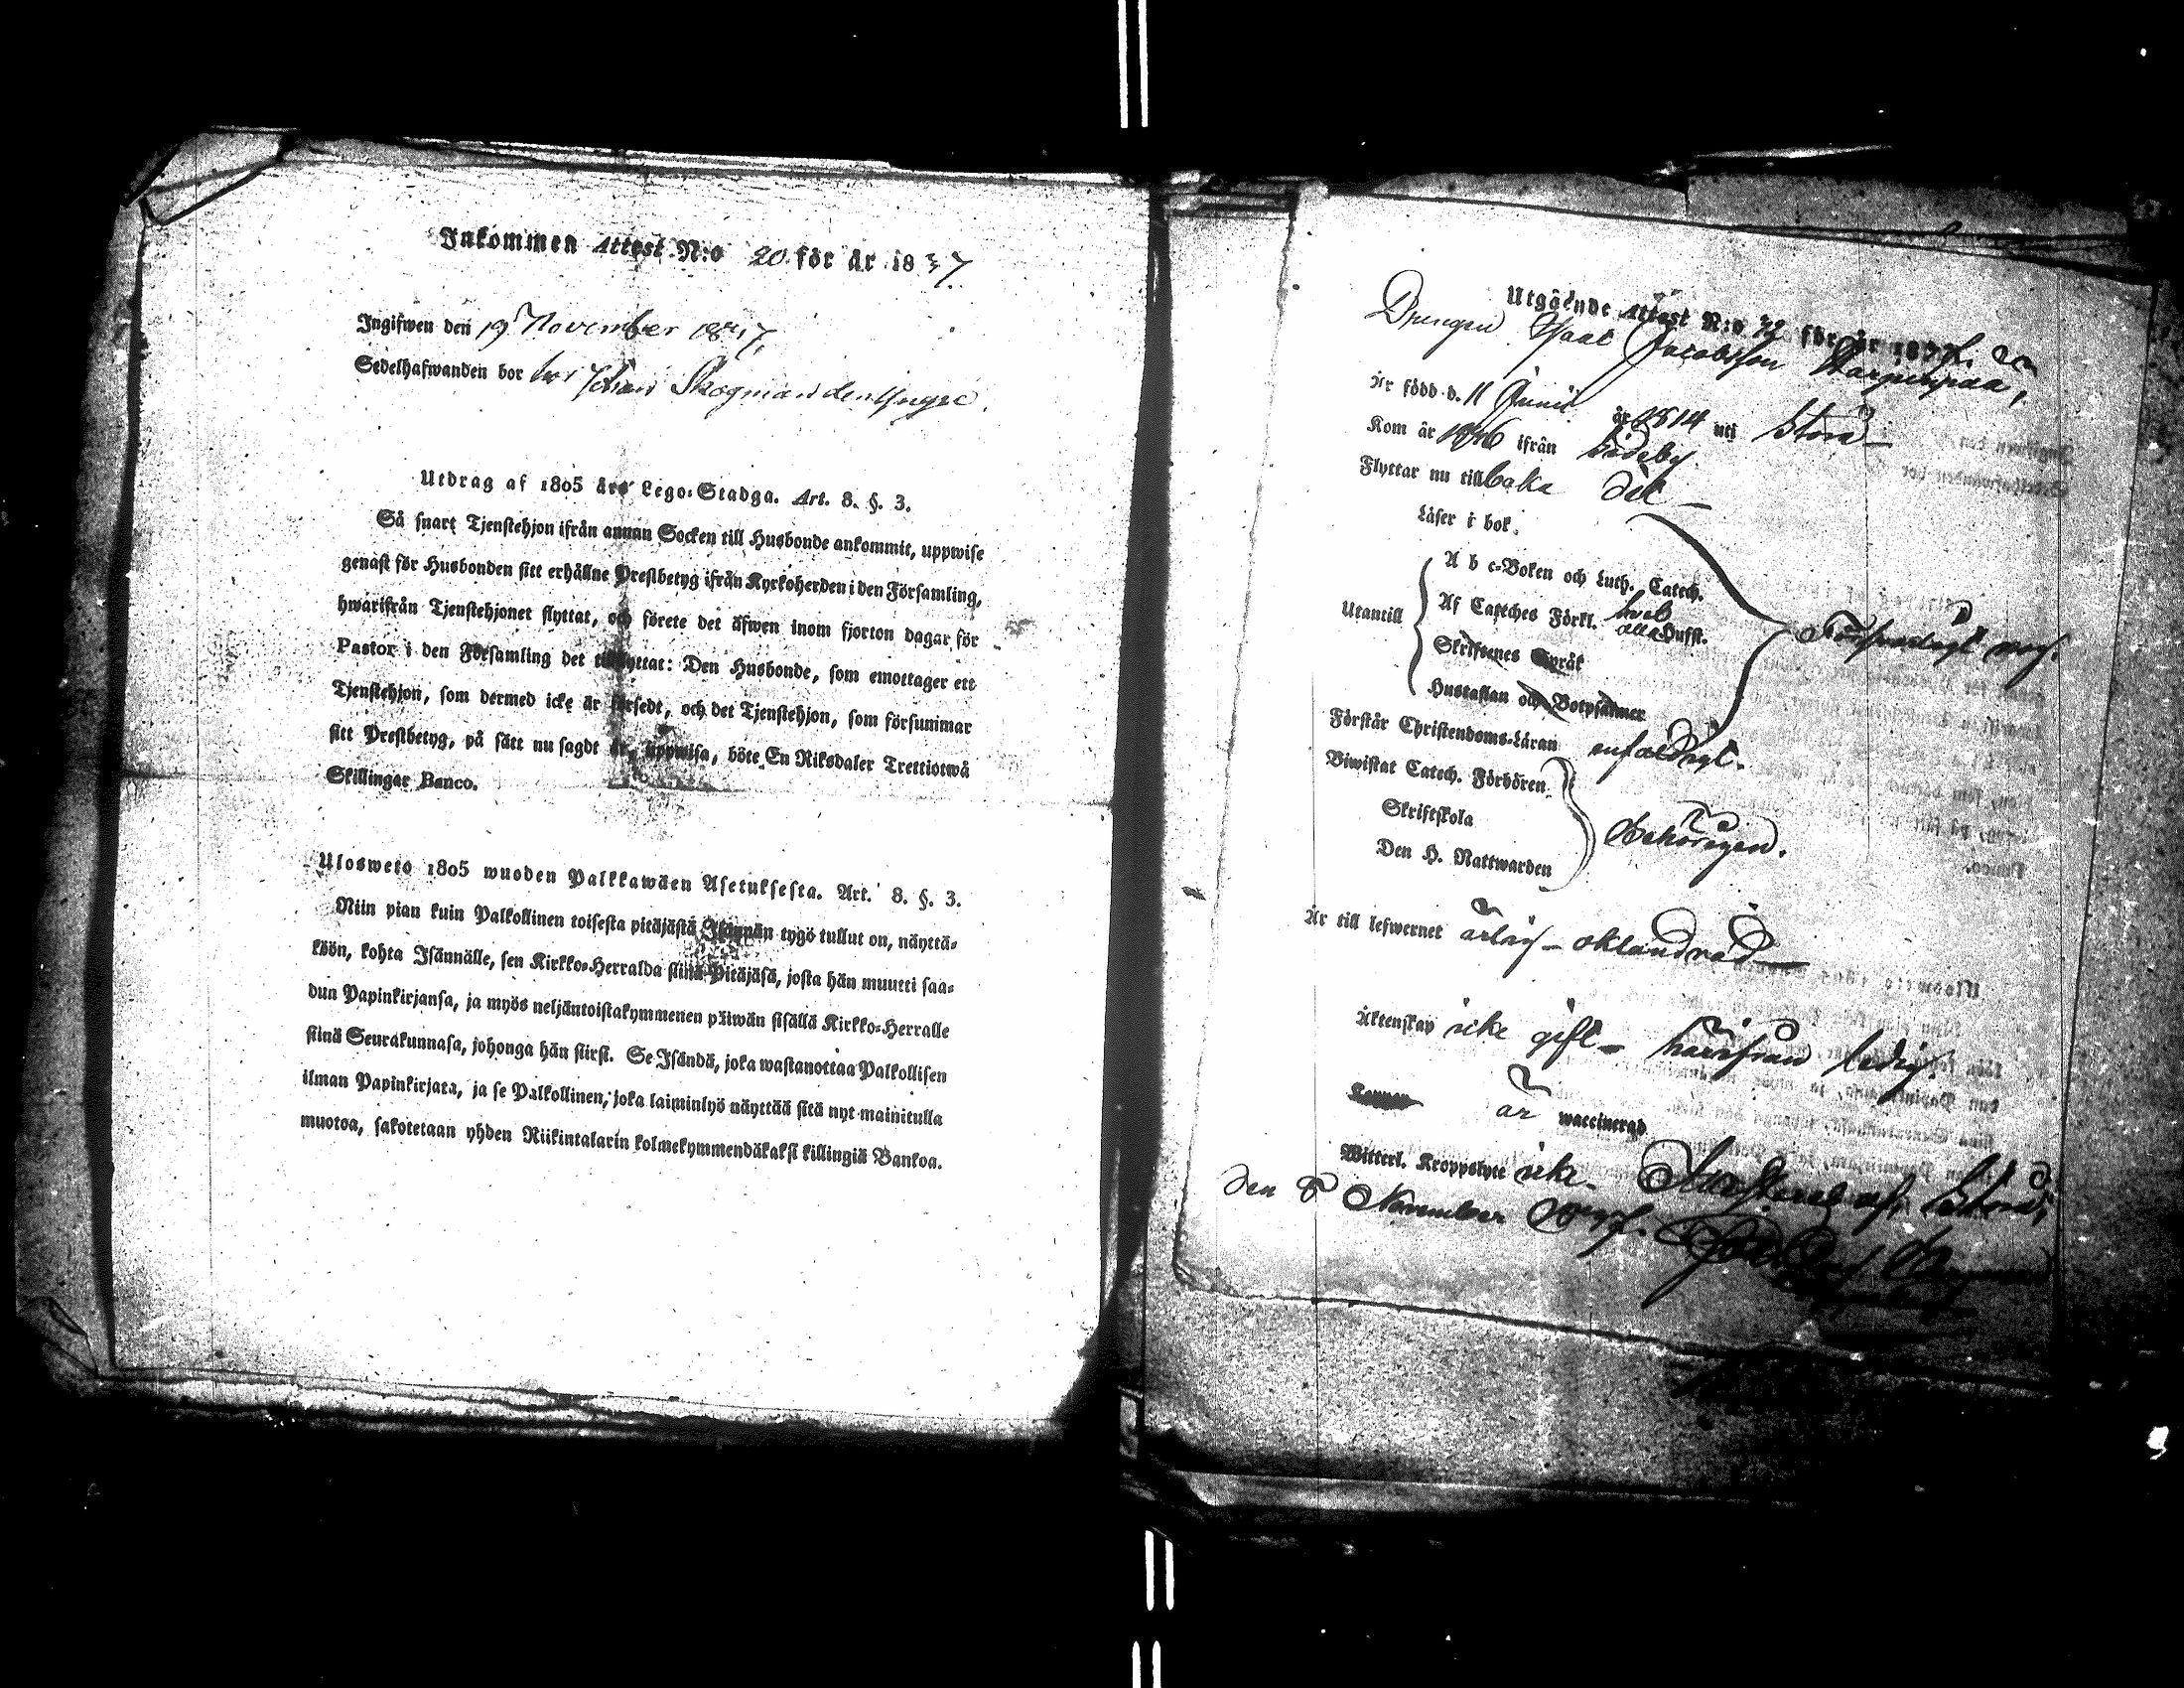 Inkommen Attest N:o 20 för år 1837
Ingifwen den 19 November 1837,
Sedelhafwanden bor hos Johan Skogman den Yngre.
Utdrag af 1805 års Lego-Stadga. Art. 8. §. 3.
Så snart Tjenstehjon ifrån annan Socken till Husbonde ankommit, uppwise
genast för Husbonden sitt erhållne Prestbetyg ifrån Kyrkoherden i den Församling,
hwarifrån Tjenstehjonet flyttat, och förete det äfwen inom fjorton dagar för
Pastor i den Församling det tillflyttat: Den Husbonde, som emottager ett
Tjenstehjon, som dermed icke är försedt, och det Tjenstehjon, som försummar
sitt Prestbetyg, på sätt nu sagdt är, uppwisa, böte En Riksdaler Trettiotwå
Skillingar Banco.
Ulosweto 1805 wuoden Palkkawäen Asetuksesta. Art. 8. §. 3.
Niin pian kuin Palkollinen toisesta pitäjästä Isännän tygö tullut on, näyttä-
köön, kohta Isännälle, sen Kirkko-Herralda siinä Pitäjäsä, josta hän muutti saa-
dun Papinkirjansa, ja myös neljäntoistakymmenen päiwän sisällä Kirkko-Herralle
siinä Seurakunnasa, johonga hän siirst. Se Isändä, joka wastanottaa Palkollisen
ilman Papinkirjata, ja se Palkollinen, joka laiminlyö näyttää sitä nyt mainitulla
muotoa, sakotetaan yhden Riikintalarin kolmekymmendäkaksi killingiä Bankoa.
Utgående Attest N:o 32 för år 1837.
Drengen Isaac Jacobsson
Är född d. 11 Junii år 1814 uti Storå
Kom år 1836 ifrån Sideby
Flyttar nu tillbaka dit
Läser i bok.
A b c-Boken och Luth. Catech.
Utantill
Af Cateches Förkl. alla Hufst.
Skriftenes Språk
Hustaflan och Botpsalmer
Förswarligt
Förstår Christendoms-Läran enfaldigt.
Biwistat Catech. Förhören
Skriftskola
Den H. Nattwarden
behörigen.
Är till lefwernet ärlig oklandrad
Äktenskap icke gift härifrån ledig.
är waccinerad
Witterl. Kroppslyte icke. Attesterad af, Storå,
den 8 November 1837.